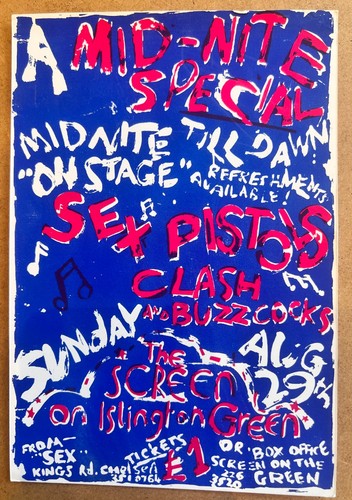 A MID-NITE
SPECIAL
MIDNITE TILL DAWN
"ON STAGE" REFRESHMENTS
AVAILABLE!
SEX PISTOLS
CLASH
AND BUZZCOCKS
SUNDAY AUG
29TH
The
SCREEN
on Islington Green
FROM— TICKETS OR BOX OFFICE
"SEX" £1 SCREEN ON THE
KINGS Rd. GREEN
351 0764 226
3520